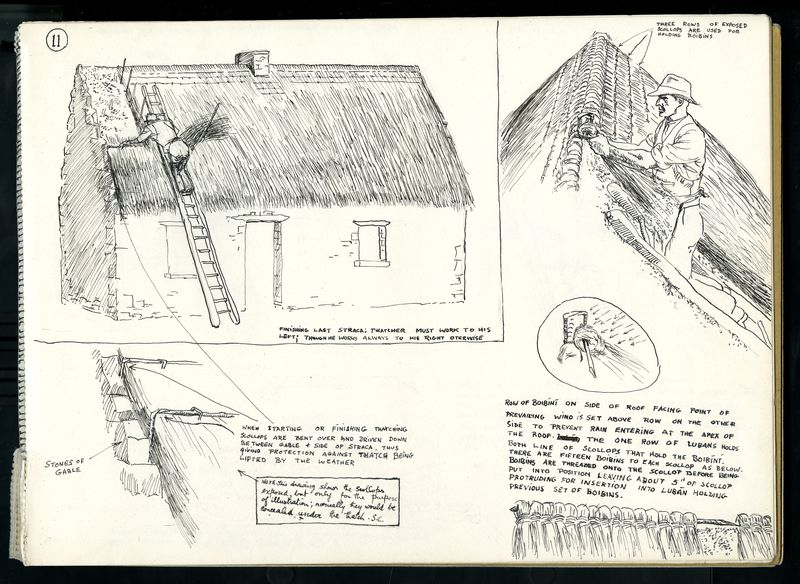 11
THREE ROWS OF EXPOSED
SCOLLOPS ARE USED FOR
HOLDING BOIBÍNS
FINISHING LAST STRACA; THATCHER MUST WORK TO HIS
LEFT; THOUGH HE WORKS ALWAYS TO HIS RIGHT OTERWISE
WHEN STARTING OR FINISHING THATCHING
SCOLLOPS ARE BENT OVER AND DRIVEN DOWN
BETWEEN GABLE & SIDE OF STRACA, THUS
GIVING PROTECTION AGAINST THATCH BEING
LIFTED BY THE WEATHER
STONES OF
GABLE
NOTE: this drawing shows the scollops
exposed, but only for the purpose
of illustration; normally they would be
concealed under the thatch - S.C.
ROW OF BOIBÍNÍ ON SIDE OF ROOF FACING POINT OF
PREVAILING WIND IS SET ABOVE ROW ON THE OTHER
SIDE TO PREVENT RAIN ENTERING AT THE APEX OF
THE ROOF. THE ONE ROW OF LUBANS HOLDS
BOTH LINE OF SCOLLOPS THAT HOLD THE BOIBÍNÍ.
THERE ARE FIFTEEN BOIBINS TO EACH SCOLLOP AS BELOW.
BOIBINS ARE THREADED ONTO THE SCOLLOP BEFORE BEING
PUT INTO POSITION LEAVING ABOUT 5" OF SCOLLOP
PROTRUDING FOR INSERTION INTO LUBÁN HOLDING
PREVIOUS SET OF BOIBINS.